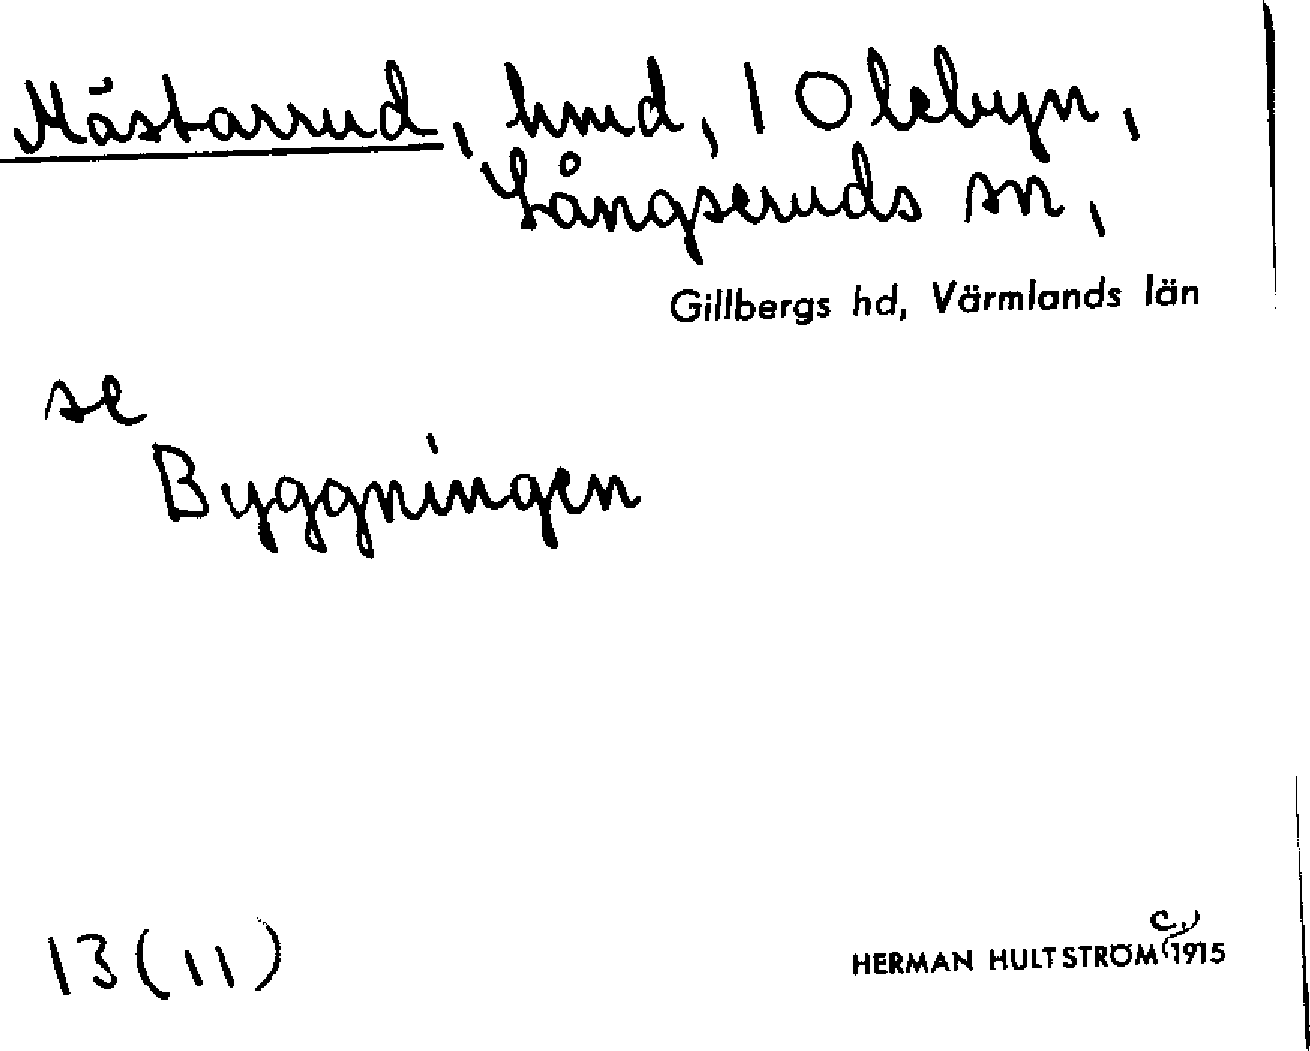 Mästarrud, hmd, 1 Olebyn,
Långseruds sn,
Gillbergs hd, Värmlands län
se
Byggningen
13(11)
HERMAN HULTSTRÖM 1915